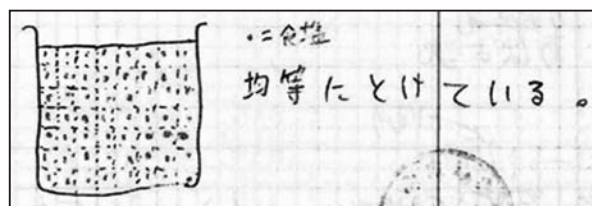 ・=食塩
均等にとけている。